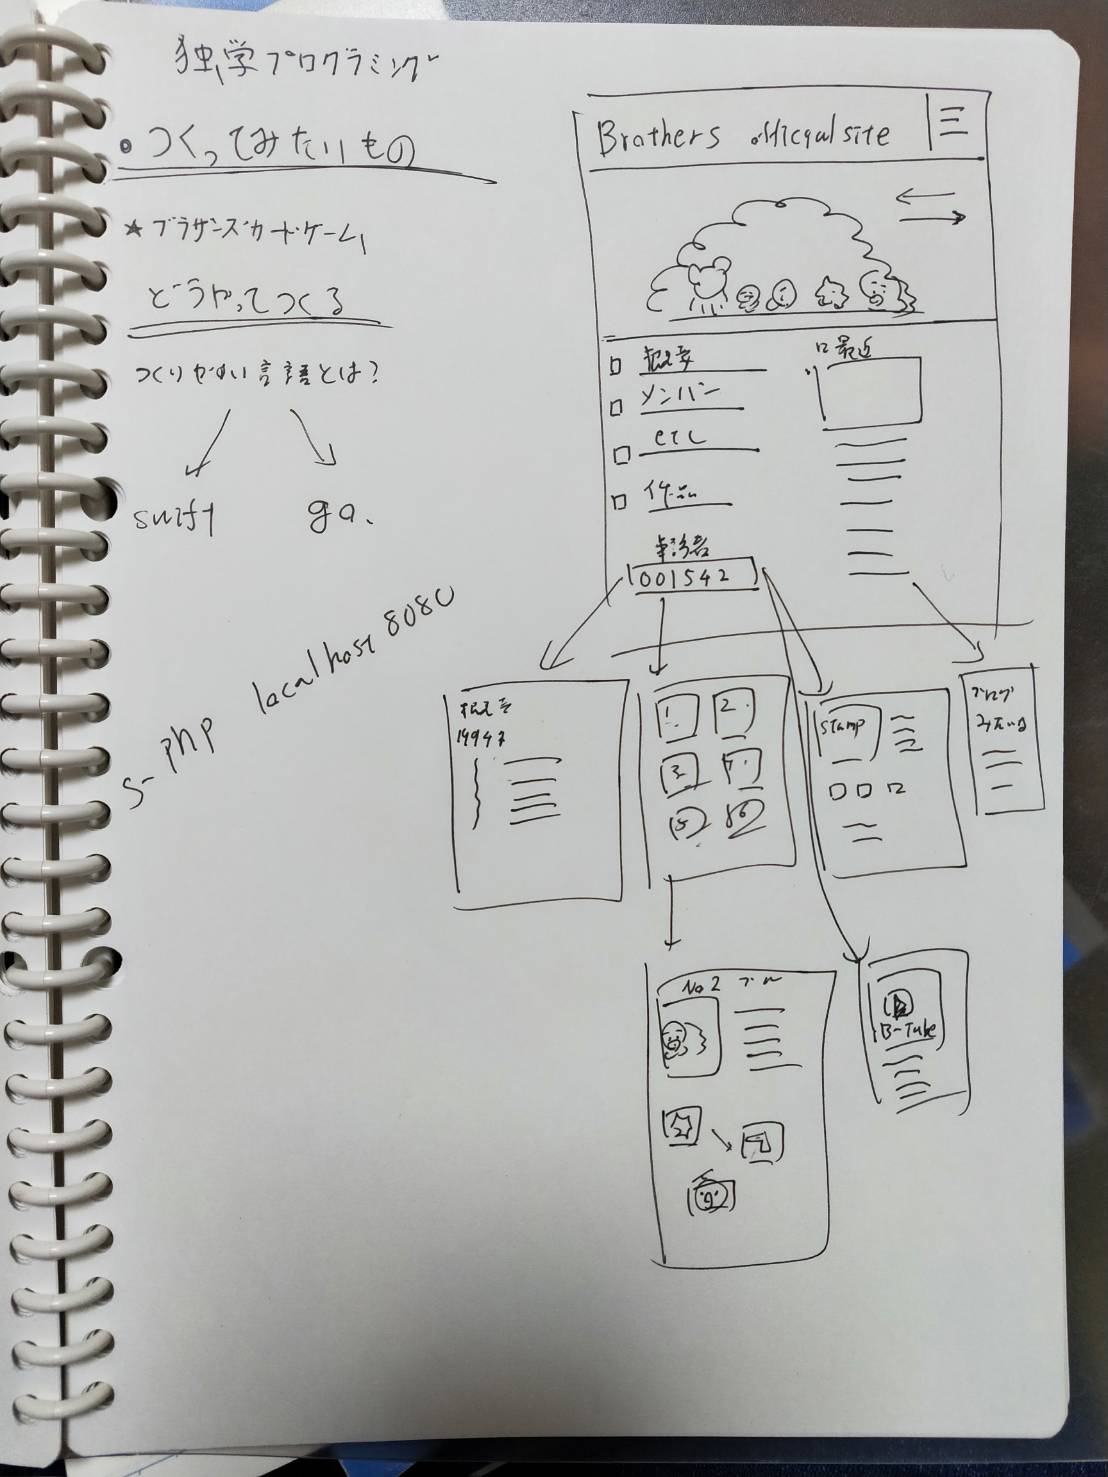 独学プログラミング
・つくってみたいもの
★ブラザーズカードゲーム
どうやってつくる
つくりやすい言語とは?
swift
go.
S- php localhost 8080
Brothers official site
概要
メンバー
etc
作品
来訪者
001542
最近
概要
1994?
1.
2.
3.
stamp
ブログ
みたいな
No 2 ブル
B-Tube